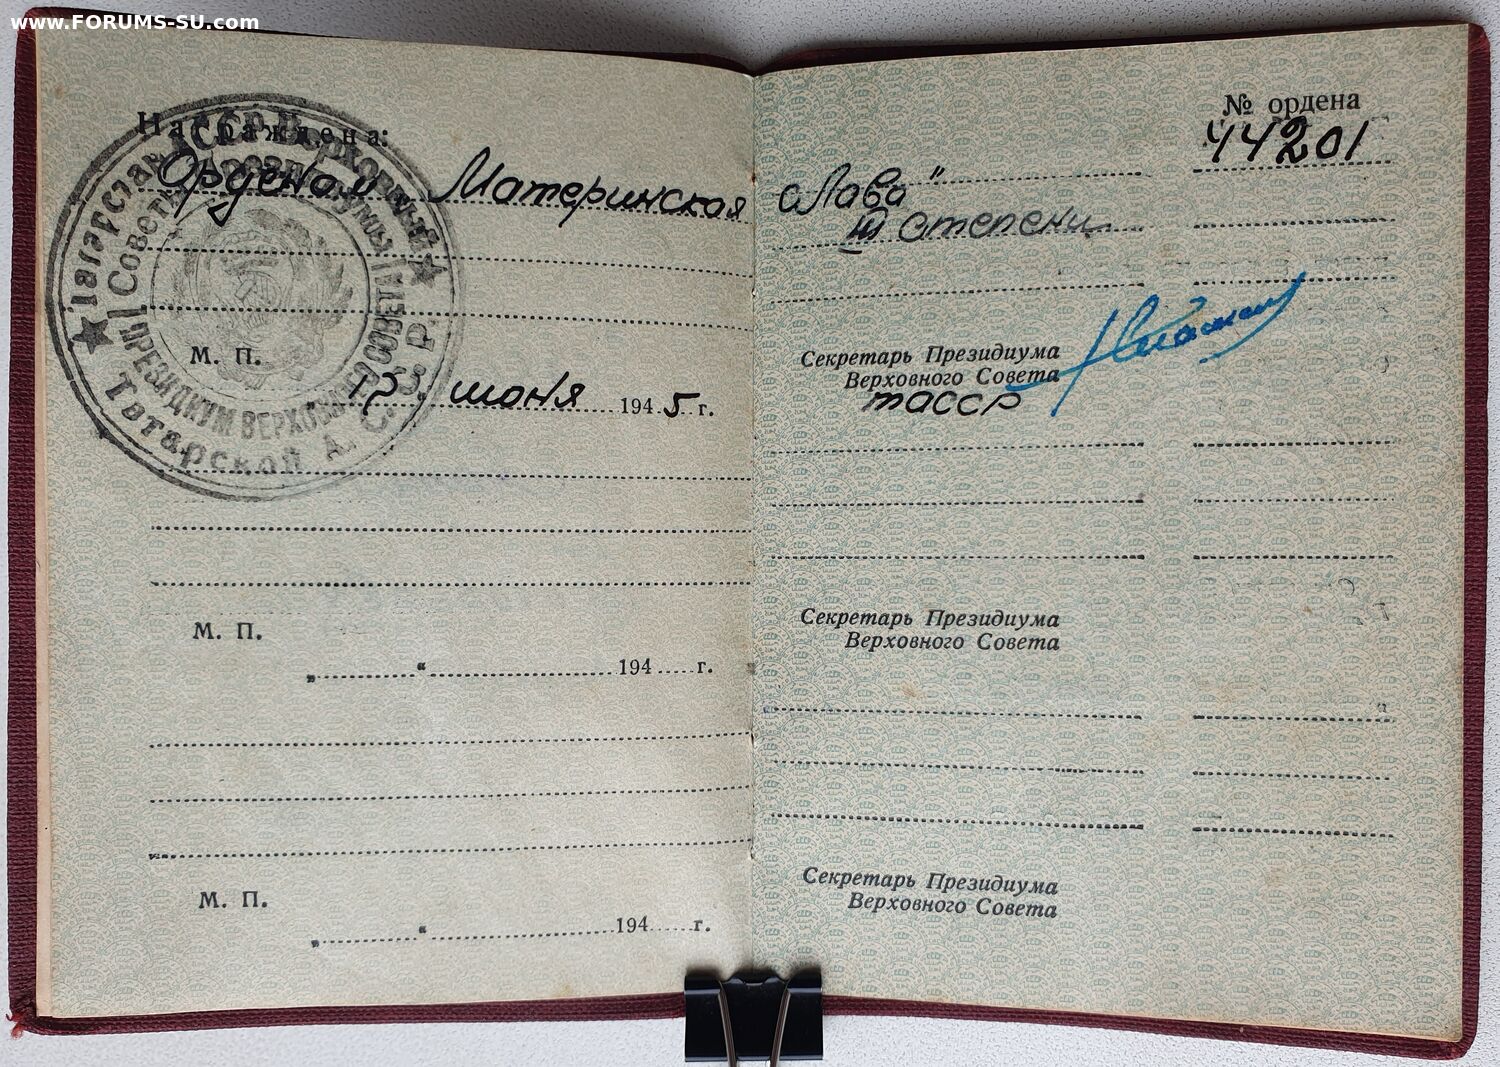 www.FORUMS-SU.com
Награждена:
Орденом Материнская слава"
III степени
№ ордена
44201
Татарстан АССР Верховный
Совета Президиумы
ПРЕЗИДИУМ ВЕРХОВНОГО СОВЕТА
Татарской А.С.С.Р.
М. П.
12. июня 1945 г.
Секретарь Президиума
Верховного Совета
ТАССР
М. П.
„ “ 194 г.
Секретарь Президиума
Верховного Совета
М. П.
„ “ 194 г.
Секретарь Президиума
Верховного Совета